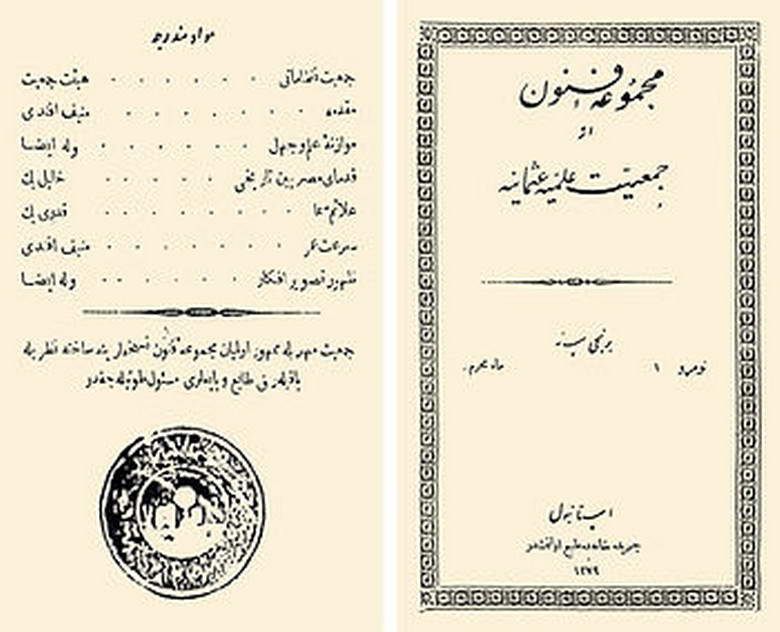 مجموعهٔ فنون
از
جمعیت علمیهٔ عثمانیه
برنجی سنه
نومرو ۱ ماه محرم
استانبول
جریده خانه‌ده طبع اولنمشدر
۱۲۷۹
مواد مندرجه
جمعیت نظاماتی هیئت جمعیت
مقدمه منیف افندی
موازنهٔ علم و جهل وله ایضا
قدمای مصریین تاریخی خلیل بك
قدری بك
منیف افندی
ظهور تصویر افکار وله ایضا
جمعیت مهریله ممهور اولمیان مجموعهٔ فنون نسخه‌لرینه ساخته نظریله
باقیله‌رق طابع و بایعلری مسئول طوتیله‌جقدر